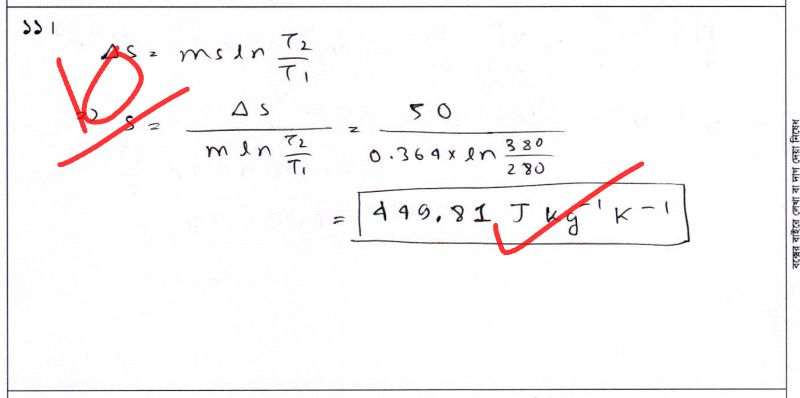 ১১।
ΔS = ms ln T₂/T₁
⇒ s = ΔS / (m ln T₂/T₁) = 50 / (0.364 × ln 380/280)
= 449.81 J kg⁻¹ K⁻¹
বক্সের বাইরে লেখা বা দাগ দেয়া নিষেধ